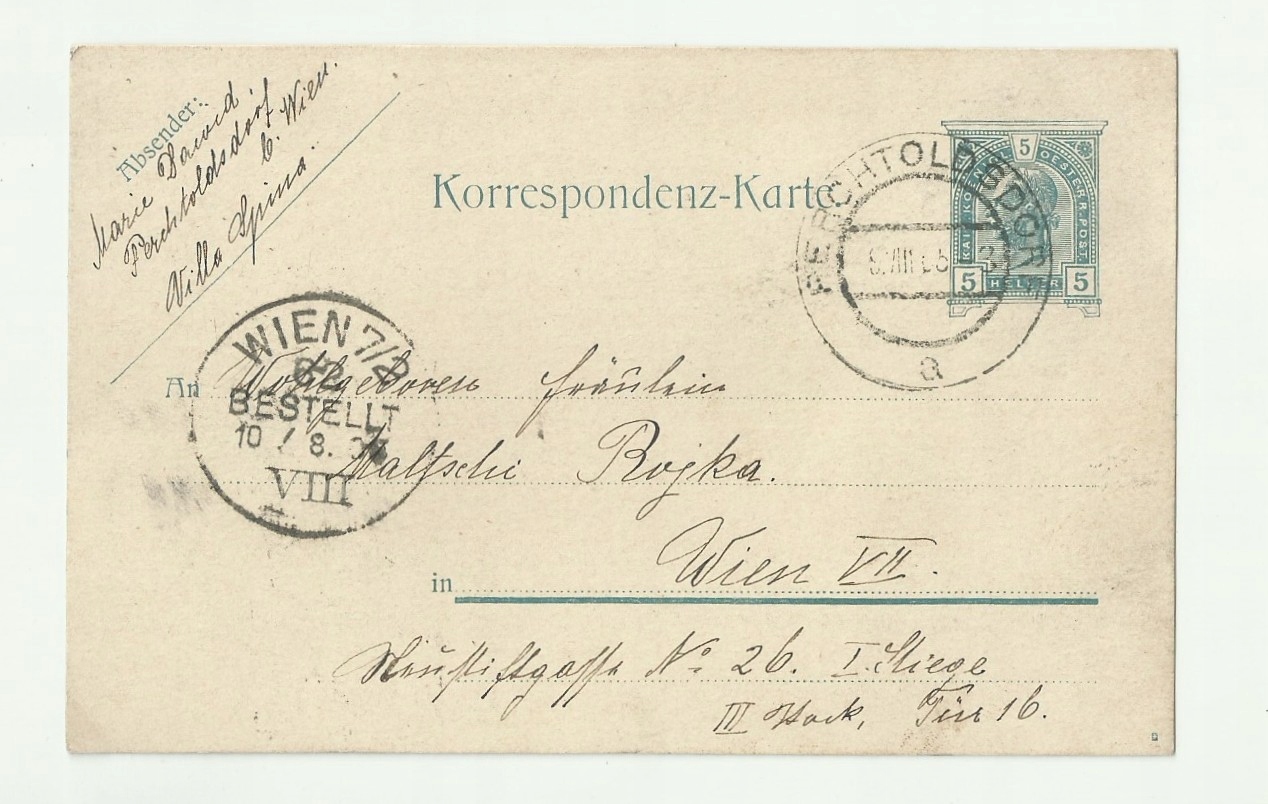 Absender:
Marie David
Perchtoldsdorf
b. Wien.
Villa Spina.
Korrespondenz-Karte.
5
KAIS. KÖNIGL. OESTERR. POST.
5 HELLER 5
PERCHTOLDSDORF
VIII
a
WIEN 7/2
62
BESTELLT
10 / 8. 0
VIII
An Wohlgeboren Fräulein
Maltschi Rojka.
in Wien VII.
Neustiftgasse No 26. I. Stiege
III Stock, Tür 16.